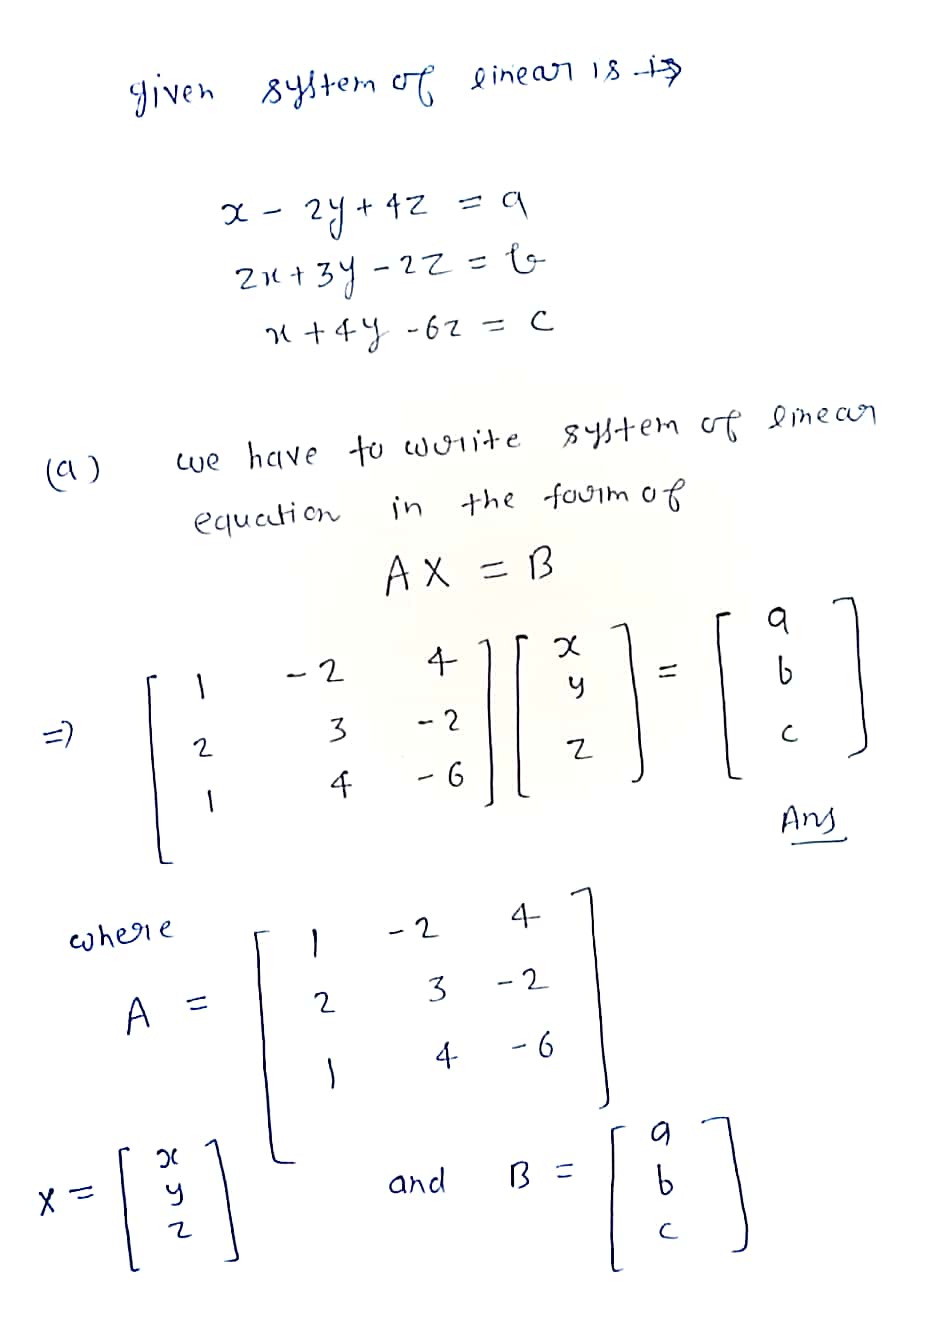 given system of linear is
x - 2y + 4z = a
2x + 3y - 2z = b
x + 4y - 6z = c
(a) we have to write system of linear
equation in the form of
AX = B
=> [ 1 -2 4 ] [ x ] = [ a ]
[ 2 3 -2 ] [ y ] [ b ]
[ 1 4 -6 ] [ z ] [ c ]
Ans
where
A = [ 1 -2 4 ]
[ 2 3 -2 ]
[ 1 4 -6 ]
X = [ x ] and B = [ a ]
[ y ] [ b ]
[ z ] [ c ]